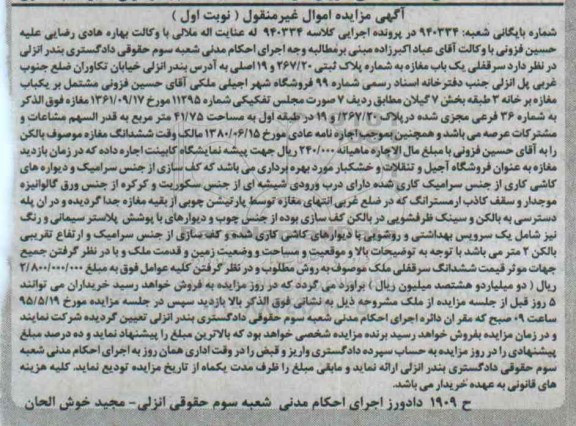 آگهی مزایده اموال غیرمنقول ( نوبت اول )
شماره بایگانی شعبه: ۹۴۰۳۳۴ در پرونده اجرایی کلاسه ۹۴۰۳۳۴ له عنایت اله ملالی با وکالت بهاره هادی رضایی علیه
حسین فزونی با وکالت آقای عباد اکبرزاده مبنی برمطالبه وجه اجرای احکام مدنی شعبه سوم حقوقی دادگستری بندر انزلی
در نظر دارد سرقفلی یک باب مغازه به شماره پلاک ثبتی ۲۶۷/۲۰ و ۱۹ اصلی به آدرس بندر انزلی خیابان تکاوران ضلع جنوب
غربی پل انزلی جنب دفترخانه اسناد رسمی شماره ۹۹ فروشگاه شهر اجیلی ملکی آقای حسین فزونی مشتمل بر یکباب
مغازه بر خانه ۳ طبقه بخش ۷ گیلان مطابق ردیف ۷ صورت مجلس تفکیکی شماره ۱۱۲۹۵ مورخ ۱۳۶۱/۰۹/۱۷ مغازه فوق الذکر
به شماره ۳۶ فرعی مجزی شده در پلاک ۲۶۷/۲۰ و ۱۹ در طبقه اول به مساحت ۴۱/۷۵ متر مربع به قدر السهم مشاعات و
مشترکات عرصه می باشد و همچنین بموجب اجاره نامه عادی مورخ ۱۳۸۰/۰۶/۱۵ مالک وقت ششدانگ مغازه موصوف بالکن
را به آقای حسین فزونی با مبلغ مال الاجاره ماهیانه ۲۴۰/۰۰۰ ریال جهت پیشه نمایشگاه کابینت اجاره داده که در زمان بازدید
مغازه به عنوان فروشگاه آجیل و تنقلات و خشکبار مورد بهره برداری می باشد که کف سازی از جنس سرامیک و دیواره های
کاشی کاری از جنس سرامیک کاری شده دارای درب ورودی شیشه ای از جنس سکوریت و کرکره از جنس ورق گالوانیزه
موجدار و سقف کاذب ارمسترانگ که در ضلع غربی انتهای مغازه توسط پارتیشن چوبی از بقیه مغازه جدا گردیده و در ان پله
دسترسی به بالکن و سینک ظرفشویی در بالکن کف سازی بوده از جنس چوب و دیوارهای با پوشش پلاستر سیمانی و رنگ
نیز شامل یک سرویس بهداشتی و روشویی با دیوارهای کاشی کاری شده و کف سازی از جنس سرامیک و ارتفاع تقریبی
بالکن ۲ متر می باشد با توجه به توضیحات بالا و موقعیت و مساحت و وضعیت زمین و قدمت ملک و با در نظر گرفتن جمیع
جهات موثر قیمت ششدانگ سرقفلی ملک موصوف به روش مطلوب و در نظر گرفتن کلیه عوامل فوق به مبلغ ۲/۸۰۰/۰۰۰/۰۰۰
ریال ( دو میلیارد و هشتصد میلیون ریال ) برآورد می گردد که در روز مزایده به فروش خواهد رسید خریداران می توانند
۵ روز قبل از جلسه مزایده از ملک مشروحه ذیل به نشانی فوق الذکر بالا بازدید سپس در جلسه مزایده مورخ ۹۵/۵/۱۹
ساعت ۰۹ صبح که مقر ان دائره اجرای احکام مدنی شعبه سوم حقوقی دادگستری بندر انزلی تعیین گردیده شرکت نمایند
و در زمان مزایده بفروش خواهد رسید برنده مزایده شخصی خواهد بود که بالاترین مبلغ را پیشنهاد نماید و ده درصد مبلغ
پیشنهادی را در روز مزایده به حساب سپرده دادگستری واریز و قبض را در وقت اداری همان روز به اجرای احکام مدنی شعبه
سوم حقوقی دادگستری بندر انزلی ارائه نماید و مابقی مبلغ را ظرف مدت یکماه از تاریخ مزایده تودیع نماید. کلیه هزینه
های قانونی به عهده خریدار می باشد.
ح ۱۹۰۹ دادورز اجرای احکام مدنی شعبه سوم حقوقی انزلی - مجید خوش الحان